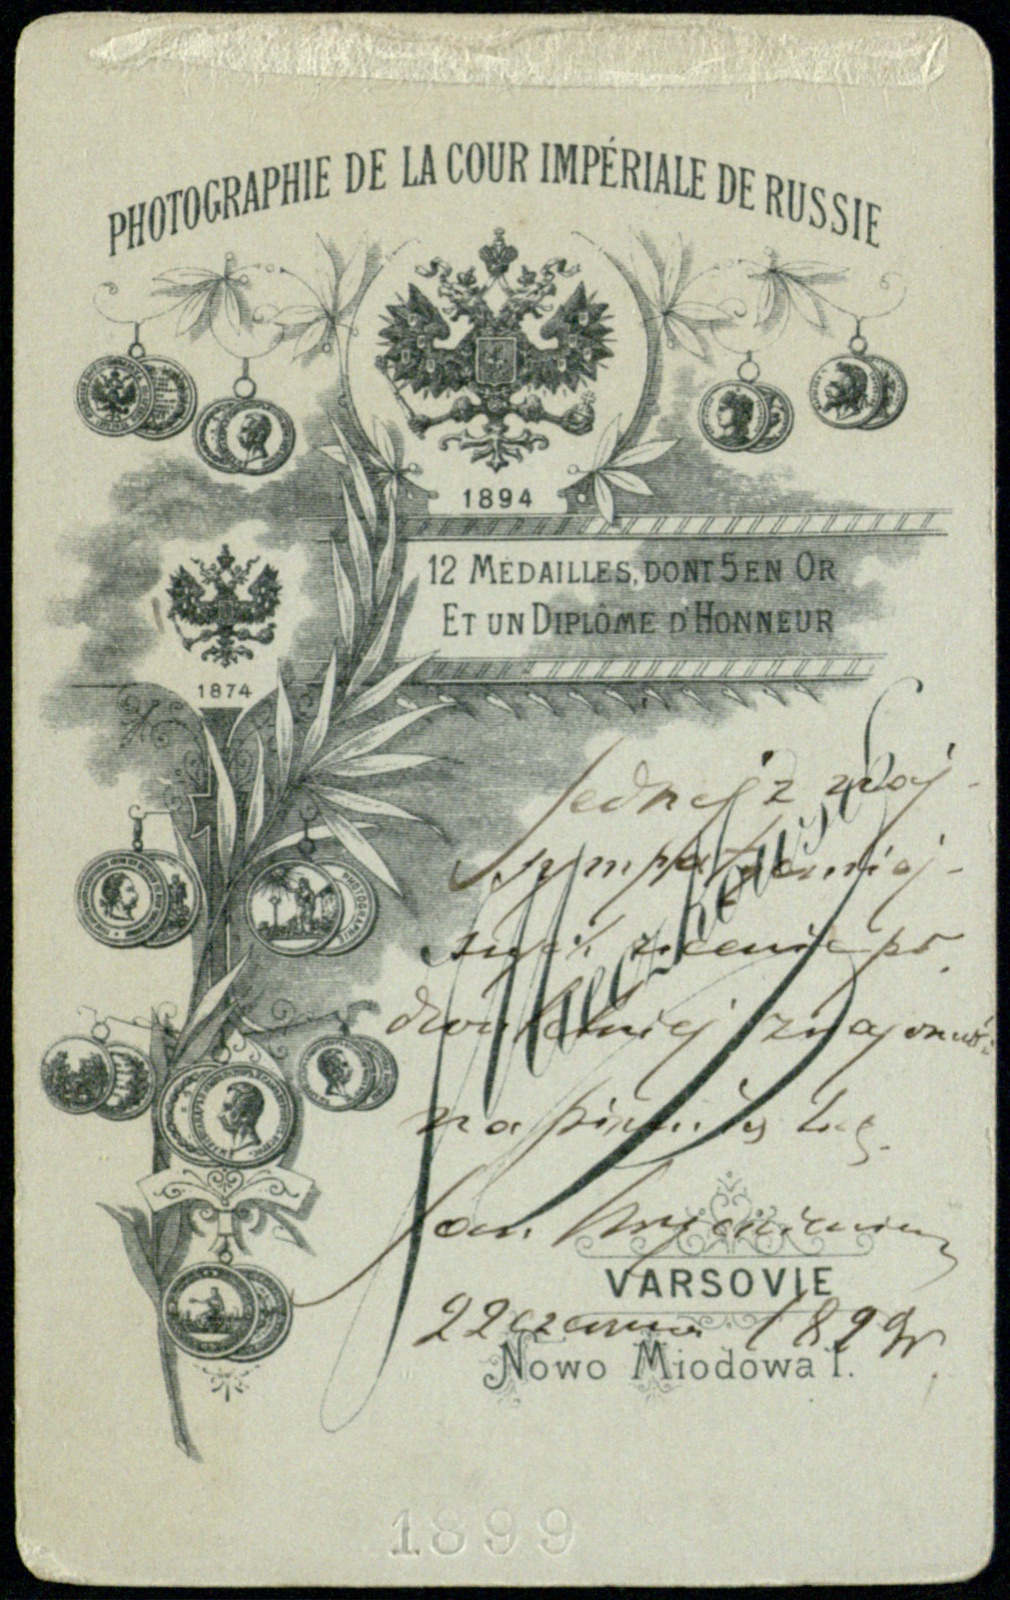 PHOTOGRAPHIE DE LA COUR IMPÉRIALE DE RUSSIE
1894
12 MÉDAILLES, DONT 5 EN OR
ET UN DIPLÔME D'HONNEUR
1874
Jednej z naj-
sympatyczniej-
szych
dwuletniej znajomości
na
Jan
VARSOVIE
22 czerwca 1899 r
NOWO MIODOWA 1.
1899